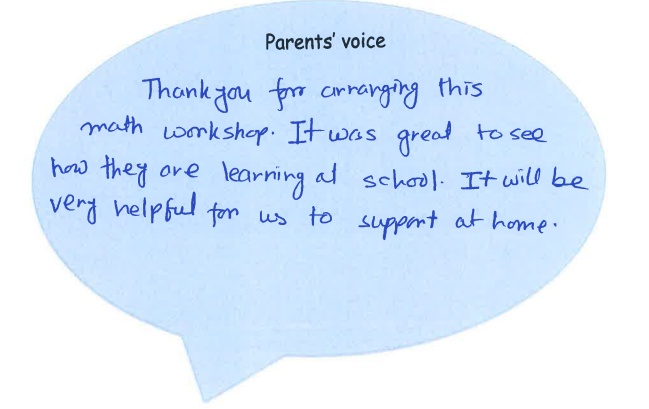 Parents' voice
Thank you for arranging this
math workshop. It was great to see
how they are learning at school. It will be
very helpful for us to support at home.